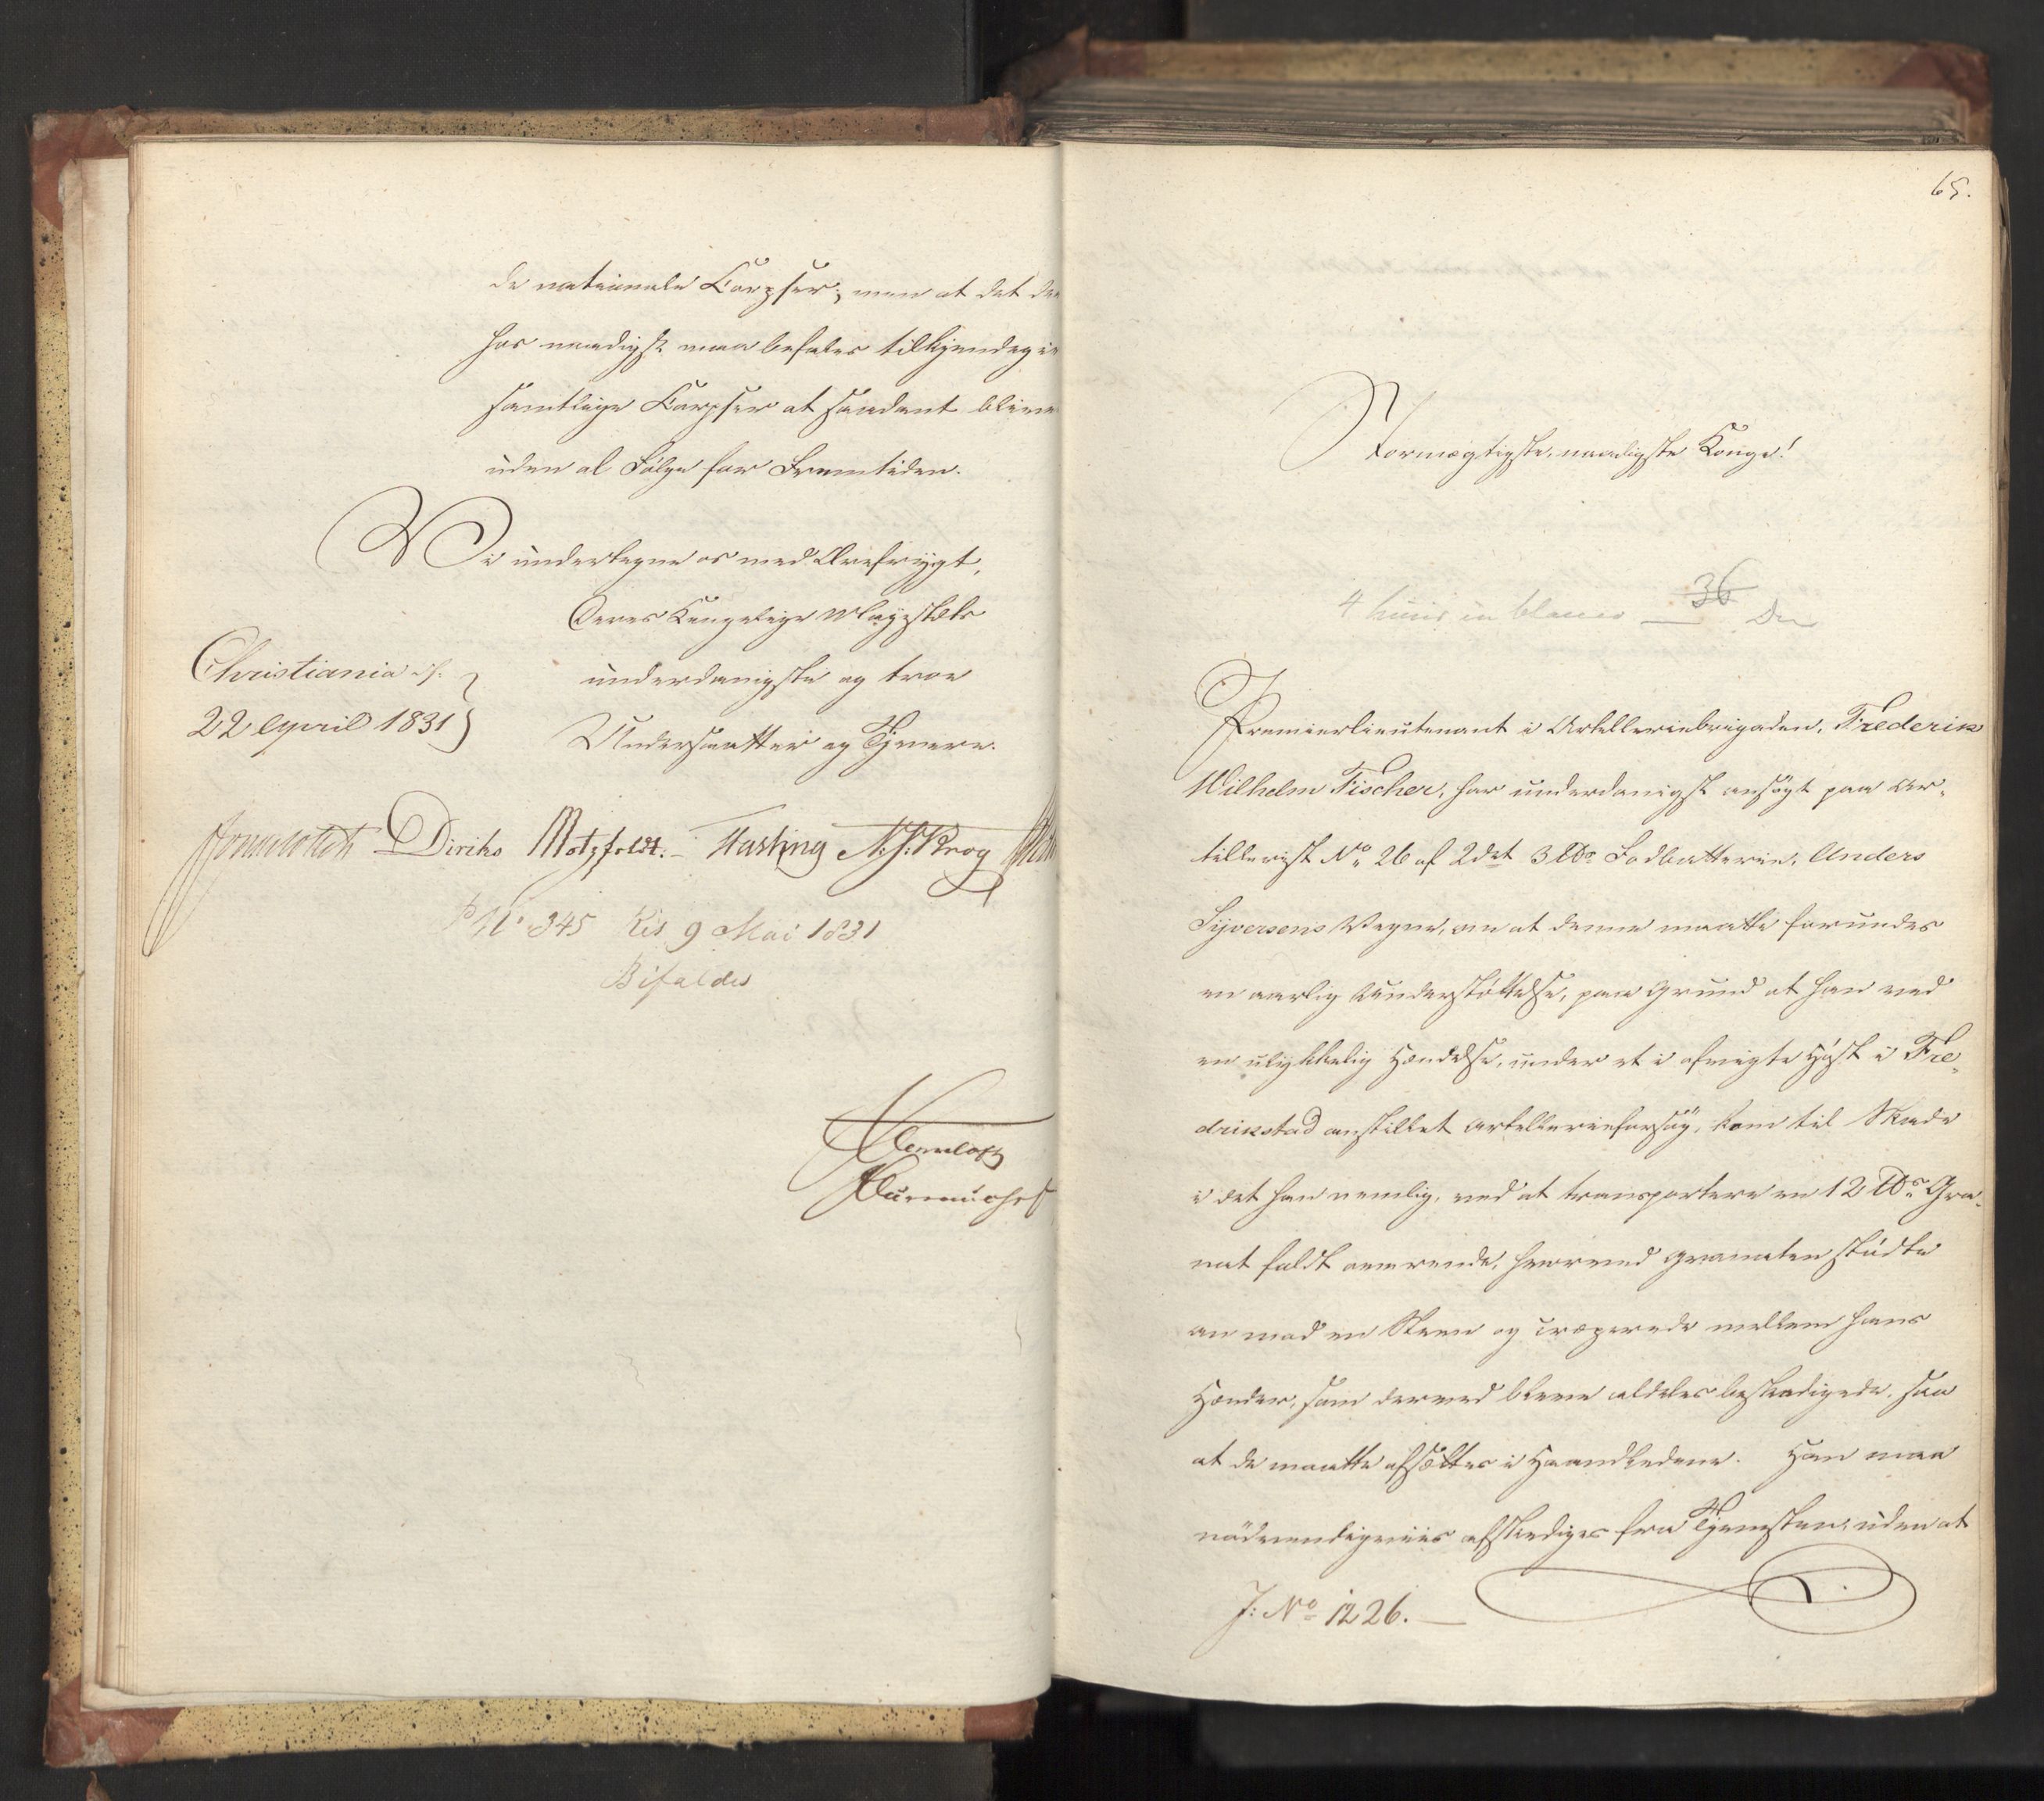 de nationale Corpser; men at det der
hos naadigst maa befales tilkjendegivet
samtlige Corpser at saadant bliver
uden al Følge for Fremtiden.
Vi undertegne os med Ærefrygt,
Deres Kongelige Majestæts
underdanigste og troe
Undersaatter og Tjenere.
Christiania d.
22 April 1831
Diriks Motzfeldt. Fasting N. J. Krog
P No 345 Res 9 Mai 1831
Bifaldes
65.
Stormægtigste, naadigste Konge!
36
Premierlieutenant i Artilleriebrigaden, Frederik
Wilhelm Fischer, har underdanigst ansøgt paa Ar-
tillerist No 26 af 2det 3 ℔s Fodbatterie, Anders
Syversens Vegne, om at denne maatte forundes
en aarlig Understøttelse, paa Grund at han ved
en ulykkelig Hændelse, under et i afvigte Høst i Fre-
drikstad anstillet Artillerieforsøg, kom til Skade
i det han nemlig, ved at transportere en 12 ℔s Gra-
nat faldt omkuld, hvorved Granaten stødte
an mod en Steen og creperede mellem hans
Hænder, som derved bleve aldeles beskadigede, saa
at de maatte afsættes i Haandledene. Han maa
nødvendigviis afskediges fra Tjenesten, uden at
J: No 1226.